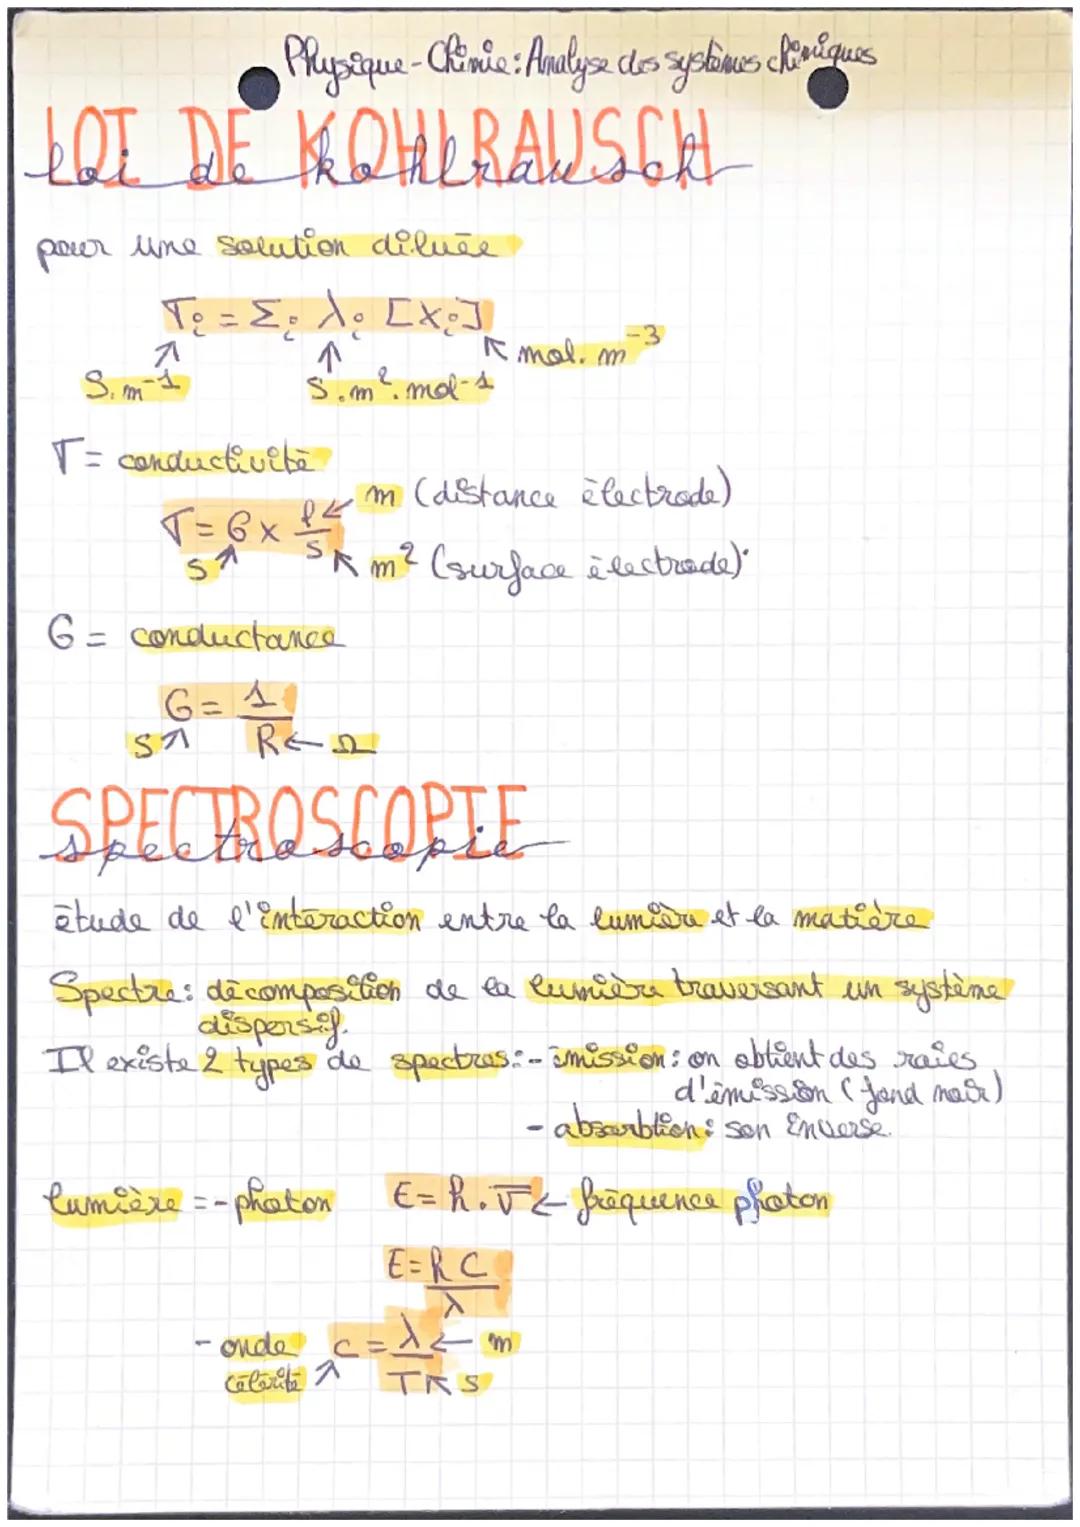 Physique-Chimie: Analyse des systèmes chimiques
LOI DE KOHLRAUSCH
loi de kohlrausch
pour une solution diluée
σi = Σi λi [Xi]
S.m-1 S.m².mol-1 mol.m-3
σ = conductivité
σ = G x l/S
m (distance électrode)
S
m² (surface électrode)
G = conductance
G = 1/R
S Ω
SPECTROSCOPIE
spectroscopie
étude de l'intéraction entre la lumière et la matière
Spectre: décomposition de la lumière traversant un système
dispersif.
Il existe 2 types de spectres: - émission: on obtient des raies
d'émission (fond noir)
- absorbtion: son inverse.
lumière = - photon E = h.ν ← fréquence photon
E = h c/λ
- onde c = λ/T ← m
célérité s